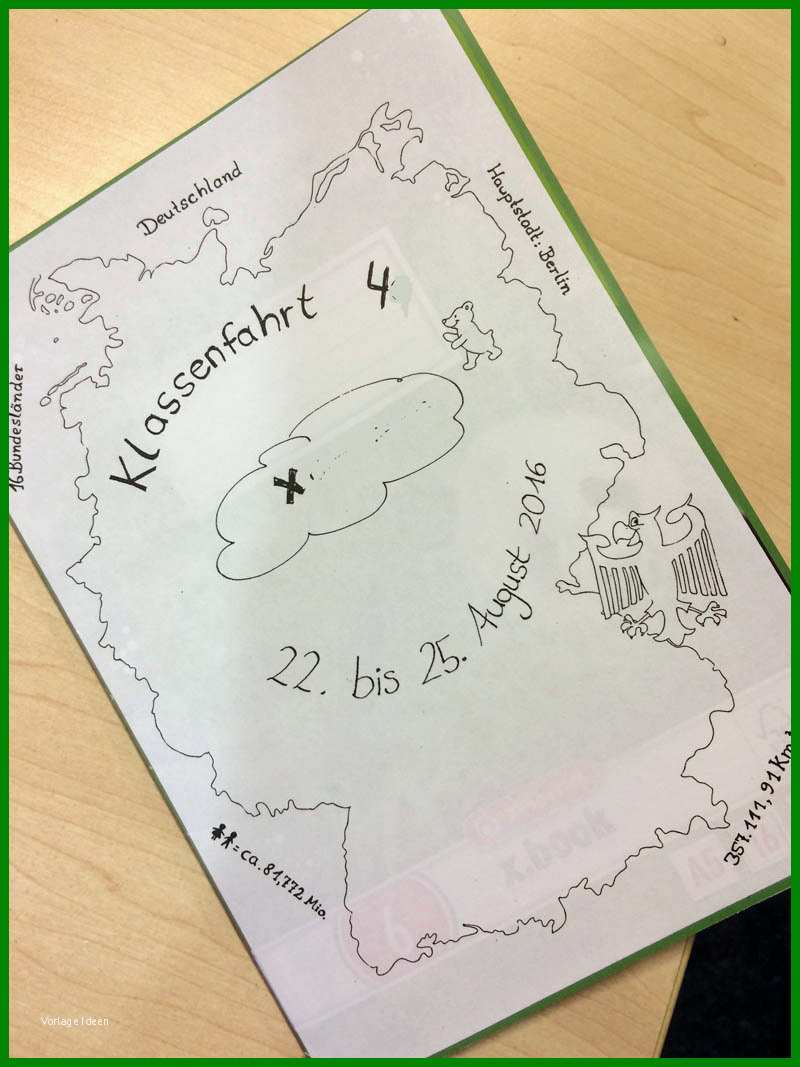 Deutschland
Hauptstadt: Berlin
16 Bundesländer
Klassenfahrt 4
x
22. bis 25. August 2016
= ca. 81,772 Mio.
357.111,91 Km
Vorlage Ideen